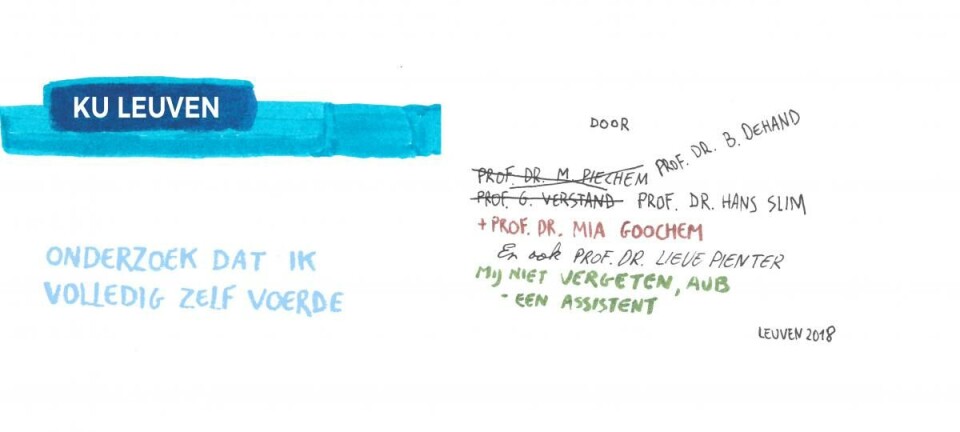 KU LEUVEN
ONDERZOEK DAT IK
VOLLEDIG ZELF VOERDE
DOOR
PROF. DR. M. PIECHEM PROF. DR. B. DEHAND
PROF. G. VERSTAND PROF. DR. HANS SLIM
+ PROF. DR. MIA GOOCHEM
En ook PROF. DR. LIEVE PIENTER
Mij NIET VERGETEN, AUB
- EEN ASSISTENT
LEUVEN 2018